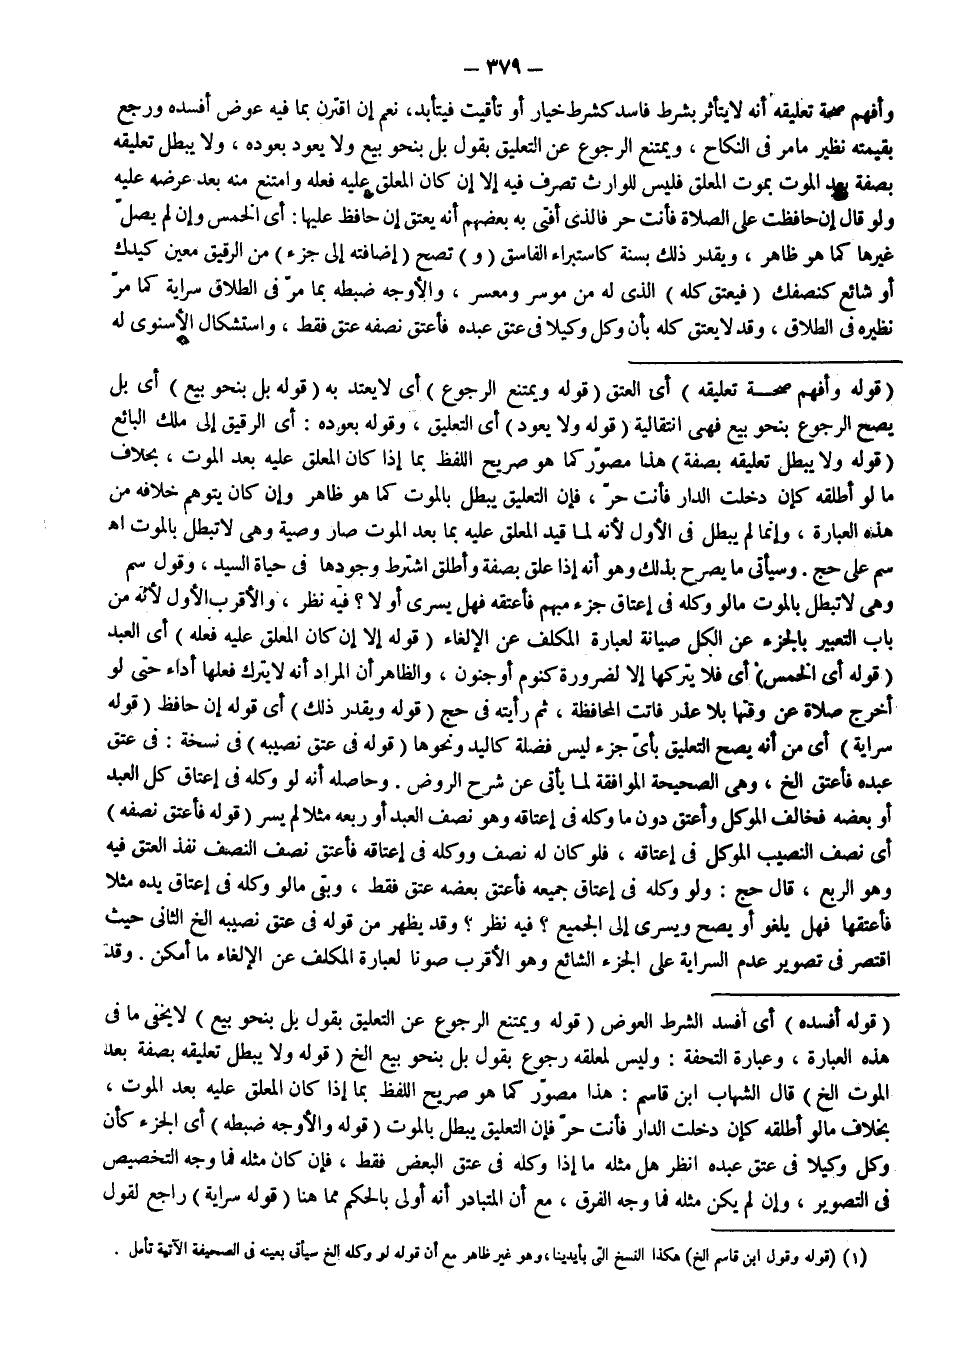 – ٣٧٩ –
وأفهم صحة تعليقه أنه لايتأثر بشرط فاسد كشرط خيار أو تأقيت فيتأبد، نعم إن اقترن بما فيه عوض أفسده ورجع
بقيمته نظير مامر فى النكاح ، ويمتنع الرجوع عن التعليق بقول بل بنحو بيع ولا يعود بعوده ، ولا يبطل تعليقه
بصفة بعد الموت بموت المعلق فليس للوارث تصرف فيه إلا إن كان المعلق عليه فعله وامتنع منه بعد عرضه عليه
ولو قال إن حافظت على الصلاة فأنت حر فالذى أفتى به بعضهم أنه يعتق إن حافظ عليها : أى الخمس وإن لم يصلّ
غيرها كما هو ظاهر ، ويقدر ذلك بسنة كاستبراء الفاسق ( و ) تصح ( إضافته إلى جزء ) من الرقيق معين كيدك
أو شائع كنصفك ( فيعتق كله ) الذى له من موسر ومعسر ، والأوجه ضبطه بما مرّ فى الطلاق سراية كما مرّ
نظيره فى الطلاق ، وقد لايعتق كله بأن وكل وكيلا فى عتق عبده فأعتق نصفه عتق فقط ، واستشكال الأسنوى له
( قوله وأفهم صحـــة تعليقه ) أى العتق ( قوله ويمتنع الرجوع ) أى لايعتد به ( قوله بل بنحو بيع ) أى بل
يصح الرجوع بنحو بيع فهى انتقالية ( قوله ولا يعود ) أى التعليق ، وقوله بعوده : أى الرقيق إلى ملك البائع
( قوله ولا يبطل تعليقه بصفة ) هذا مصوّر كما هو صريح اللفظ بما إذا كان المعلق عليه بعد الموت ، بخلاف
ما لو أطلقه كإن دخلت الدار فأنت حرّ ، فإن التعليق يبطل بالموت كما هو ظاهر وإن كان يتوهم خلافه من
هذه العبارة ، وإنما لم يبطل فى الأول لأنه لما قيد المعلق عليه بما بعد الموت صار وصية وهى لاتبطل بالموت اه
سم على حج . وسيأتى ما يصرح بذلك وهو أنه إذا علق بصفة وأطلق اشترط وجودها فى حياة السيد ، وقول سم
وهى لاتبطل بالموت مالو وكله فى إعتاق جزء مبهم فأعتقه فهل يسرى أو لا ؟ فيه نظر ، والأقرب الأول لأنه من
باب التعبير بالجزء عن الكل صيانة لعبارة المكلف عن الإلغاء ( قوله إلا إن كان المعلق عليه فعله ) أى العبد
( قوله أى الخمس) أى فلا يتركها إلا لضرورة كنوم أوجنون ، والظاهر أن المراد أنه لايترك فعلها أداء حتى لو
أخرج صلاة عن وقتها بلا عذر فاتت المحافظة ، ثم رأيته فى حج ( قوله ويقدر ذلك ) أى قوله إن حافظ ( قوله
سراية ) أى من أنه يصح التعليق بأىّ جزء ليس فضلة كاليد ونحوها ( قوله فى عتق نصيبه ) فى نسخة : فى عتق
عبده فأعتق الخ ، وهى الصحيحة الموافقة لما يأتى عن شرح الروض . وحاصله أنه لو وكله فى إعتاق كل العبد
أو بعضه فخالف الموكل وأعتق دون ما وكله فى إعتاقه وهو نصف العبد أو ربعه مثلا لم يسر ( قوله فأعتق نصفه )
أى نصف النصيب الموكل فى إعتاقه ، فلو كان له نصف ووكله فى إعتاقه فأعتق نصف النصف نفذ العتق فيه
وهو الربع ، قال حج : ولو وكله فى إعتاق جميعه فأعتق بعضه عتق فقط ، وبقى مالو وكله فى إعتاق يده مثلا
فأعتقها فهل يلغو أو يصح ويسرى إلى الجميع ؟ فيه نظر ؟ وقد يظهر من قوله فى عتق نصيبه الخ الثانى حيث
اقتصر فى تصوير عدم السراية على الجزء الشائع وهو الأقرب صونا لعبارة المكلف عن الإلغاء ما أمكن . وقد
( قوله أفسده ) أى أفسد الشرط العوض ( قوله ويمتنع الرجوع عن التعليق بقول بل بنحو بيع ) لايخفى ما فى
هذه العبارة ، وعبارة التحفة : وليس لمعلقه رجوع بقول بل بنحو بيع الخ ( قوله ولا يبطل تعليقه بصفة بعد
الموت الخ ) قال الشهاب ابن قاسم : هذا مصوّر كما هو صريح اللفظ بما إذا كان المعلق عليه بعد الموت ،
بخلاف مالو أطلقه كإن دخلت الدار فأنت حرّ فإن التعليق يبطل بالموت ( قوله والأوجه ضبطه ) أى الجزء كأن
وكل وكيلا فى عتق عبده انظر هل مثله ما إذا وكله فى عتق البعض فقط ، فإن كان مثله فما وجه التخصيص
فى التصوير ، وإن لم يكن مثله فما وجه الفرق ، مع أن المتبادر أنه أولى بالحكم مما هنا ( قوله سراية ) راجع لقول
(١) (قوله وقول ابن قاسم الخ) هكذا النسخ التى بأيدينا ، وهو غير ظاهر مع أن قوله لو وكله إلخ سيأتى بعينه فى الصحيفة الآتية تأمل .